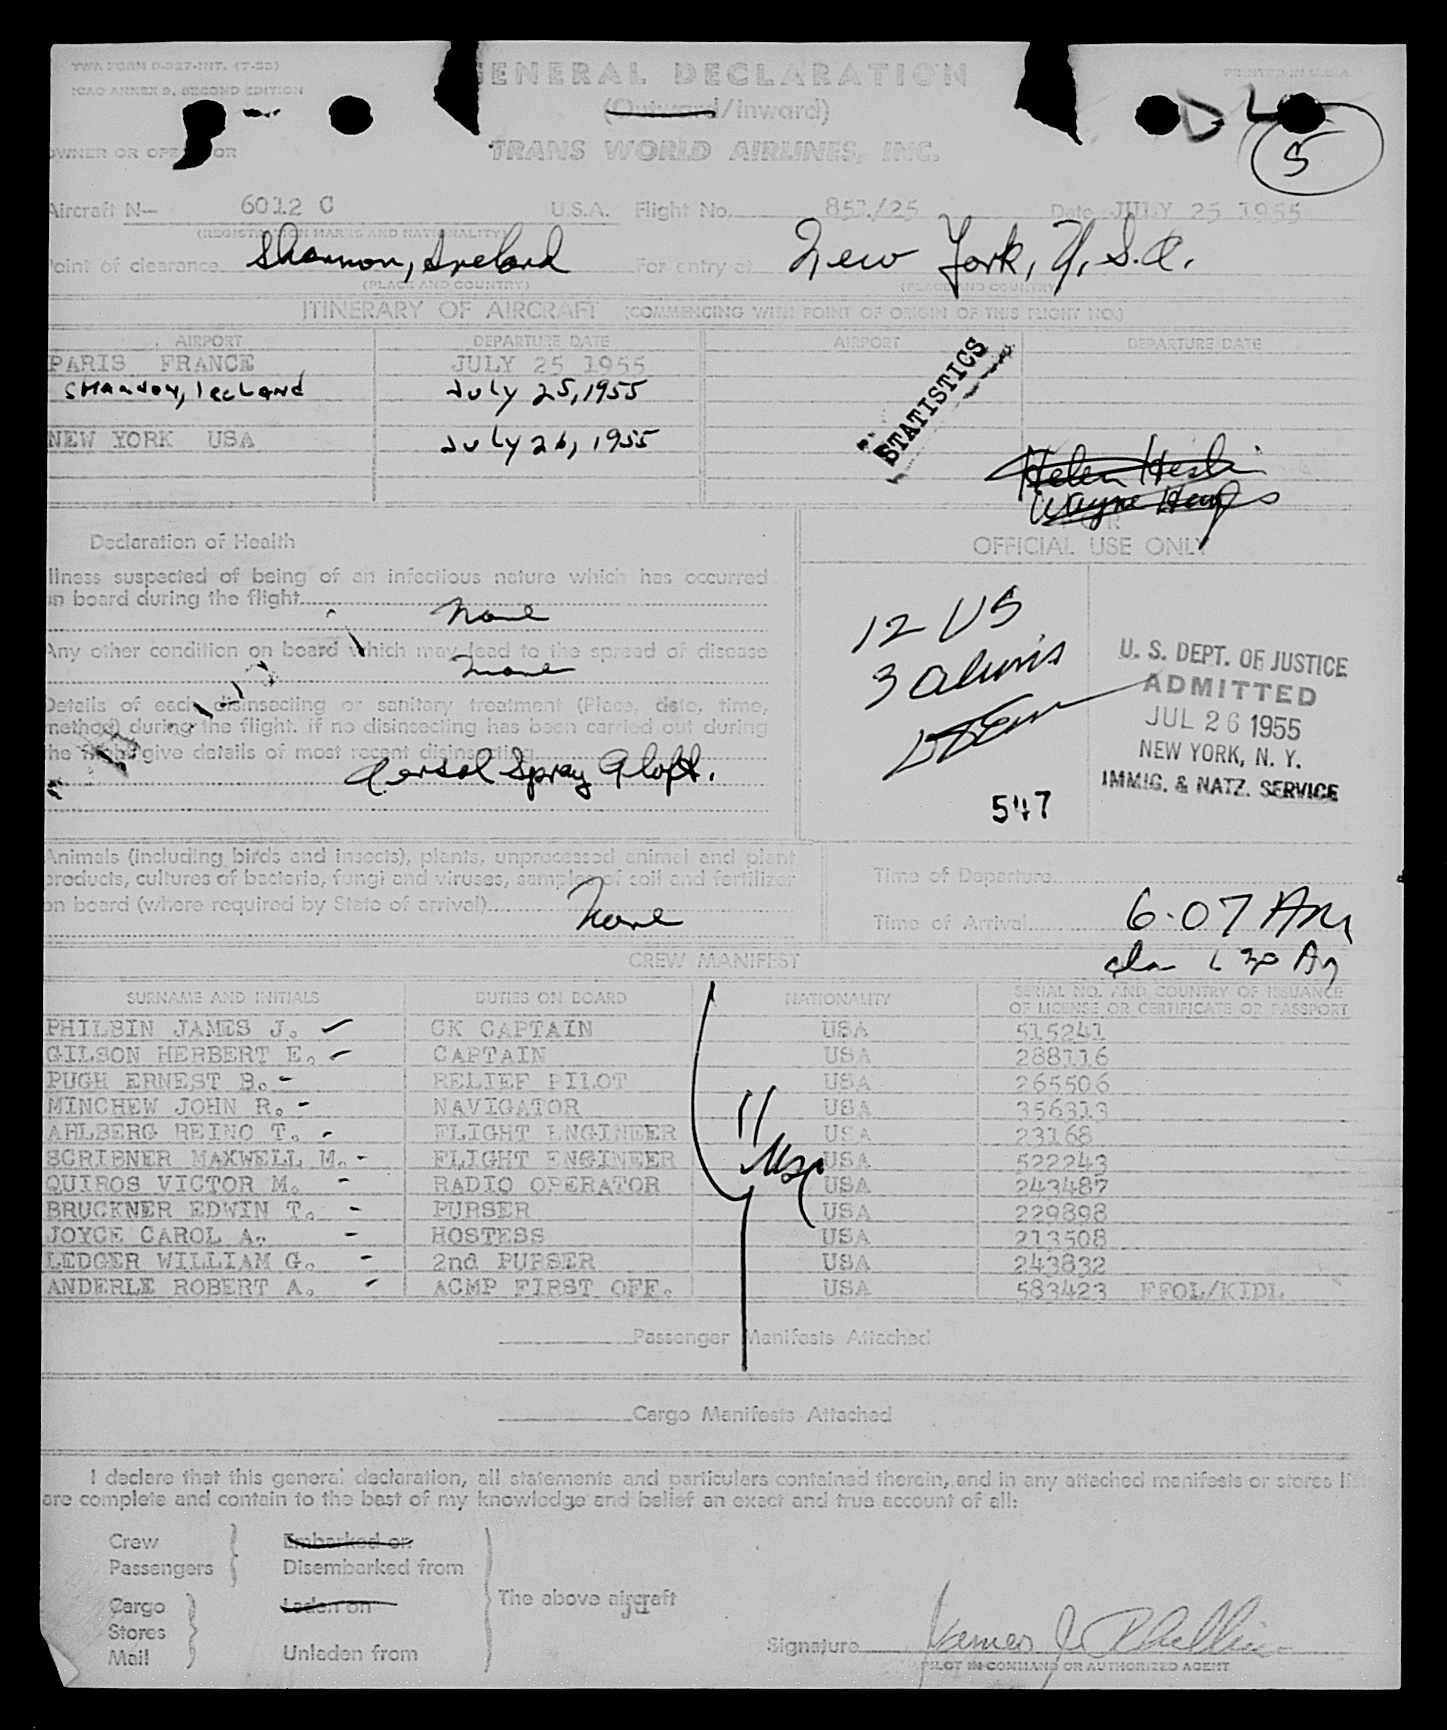 TWA FORM 0-327-INT. (7-53)
ICAO ANNEX 9, SECOND EDITION
GENERAL DECLARATION
PRINTED IN U.S.A.
(Outward/inward)
D L
5
OWNER OR OPERATOR
TRANS WORLD AIRLINES, INC.
Aircraft N— 6012 C U.S.A. Flight No. 851/25 Date JULY 25 1955
(REGISTRATION MARKS AND NATIONALITY)
Point of clearance Shannon, Ireland For entry at New York, U.S.A.
(PLACE AND COUNTRY) (PLACE AND COUNTRY)
ITINERARY OF AIRCRAFT (COMMENCING WITH POINT OF ORIGIN OF THIS FLIGHT NO.)
AIRPORT DEPARTURE DATE AIRPORT DEPARTURE DATE
PARIS FRANCE JULY 25 1955
SHANNON, IRELAND JULY 25, 1955
STATISTICS
NEW YORK USA JULY 26, 1955
Helen Heslin
Wayne Hays
FOR
OFFICIAL USE ONLY
Declaration of Health
Illness suspected of being of an infectious nature which has occurred
on board during the flight None
Any other condition on board which may lead to the spread of disease
None
Details of each disinsecting or sanitary treatment (Place, date, time,
method) during the flight. If no disinsecting has been carried out during
the flight give details of most recent disinsecting
Aerosol Spray Aloft.
12 US
3 Aliens
547
U. S. DEPT. OF JUSTICE
ADMITTED
JUL 26 1955
NEW YORK, N. Y.
IMMIG. & NATZ. SERVICE
Animals (including birds and insects), plants, unprocessed animal and plant
products, cultures of bacteria, fungi and viruses, samples of soil and fertilizer
on board (where required by State of arrival) None
Time of Departure
Time of Arrival 6:07 AM
CREW MANIFEST
SURNAME AND INITIALS DUTIES ON BOARD NATIONALITY SERIAL NO. AND COUNTRY OF ISSUANCE
OF LICENSE OR CERTIFICATE OR PASSPORT
PHILBIN JAMES J. CK CAPTAIN USA 515241
GILSON HERBERT E. CAPTAIN USA 288116
PUGH ERNEST B. RELIEF PILOT USA 265506
MINCHEW JOHN R. NAVIGATOR USA 356313
AHLBERG REINO T. FLIGHT ENGINEER USA 23168
SCRIBNER MAXWELL M. FLIGHT ENGINEER USA 522243
QUIROS VICTOR M. RADIO OPERATOR USA 243487
BRUCKNER EDWIN T. PURSER USA 229898
JOYCE CAROL A. HOSTESS USA 213508
LEDGER WILLIAM G. 2nd PURSER USA 243832
ANDERLE ROBERT A. ACMP FIRST OFF. USA 583423 FFOL/KIDL
11
USA
Passenger Manifests Attached
Cargo Manifests Attached
I declare that this general declaration, all statements and particulars contained therein, and in any attached manifests or stores
are complete and contain to the best of my knowledge and belief an exact and true account of all:
Crew
Passengers
Embarked on
Disembarked from
Cargo
Stores
Mail
Laden on
Unladen from
The above aircraft
Signature James J. Philbin
PILOT IN COMMAND OR AUTHORIZED AGENT